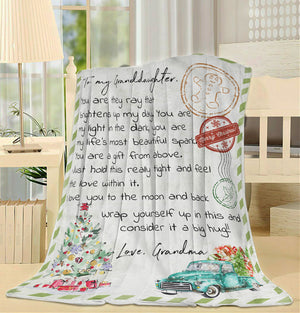 To my Granddaughter,
You are they ray that
brightens up my day. You are
my light in the dark, you are
my life's most beautiful spark
You are a gift from above.
Just hold this really tight and feel
the love within it.
love you to the moon and back
wrap yourself up in this and
consider it a big hug!
Love, Grandma
Merry Christmas